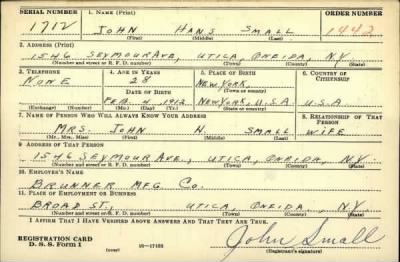 SERIAL NUMBER 1. NAME (Print) ORDER NUMBER
1712 JOHN HANS SMALL 1442
(First) (Middle) (Last)
2. ADDRESS (Print)
1546 SEYMOUR AVE, UTICA, ONEIDA, N.Y.
(Number and street or R. F. D. number) (Town) (County) (State)
3. TELEPHONE 4. AGE IN YEARS 5. PLACE OF BIRTH 6. COUNTRY OF CITIZENSHIP
NONE 28 NEW YORK,
DATE OF BIRTH (Town or county)
FEB. 4, 1912 NEW YORK, U.S.A U.S.A
(Exchange) (Number) (Mo.) (Day) (Yr.) (State or country)
7. NAME OF PERSON WHO WILL ALWAYS KNOW YOUR ADDRESS 8. RELATIONSHIP OF THAT PERSON
MRS. JOHN H. SMALL WIFE
(Mr., Mrs., Miss) (First) (Middle) (Last)
9. ADDRESS OF THAT PERSON
1546 SEYMOUR AVE., UTICA, ONEIDA, N.Y.
(Number and street or R. F. D. number) (Town) (County) (State)
10. EMPLOYER'S NAME
BRUNNER MFG CO.
11. PLACE OF EMPLOYMENT OR BUSINESS
BROAD ST., UTICA, ONEIDA, N.Y.
(Number and street or R. F. D. number) (Town) (County) (State)
I AFFIRM THAT I HAVE VERIFIED ABOVE ANSWERS AND THAT THEY ARE TRUE.
REGISTRATION CARD
D. S. S. Form 1 (over) 16—17105 John Small
(Registrant's signature)